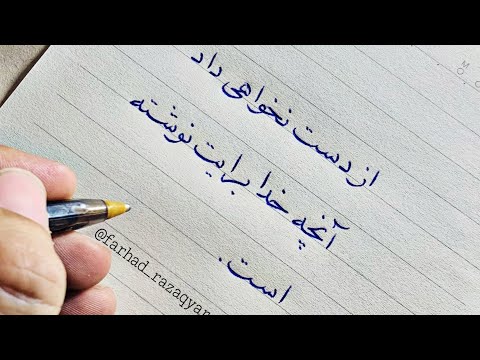 از دست نخواهی داد
آنچه خدا برایت نوشته
است.
@farhad_razaqyar